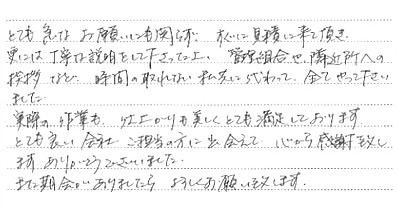 とても急なお願いにも関らず、すぐに見積に来て頂き、
更には丁寧な説明をして下さった上、管理組合や、隣近所への
挨拶など、時間の取れない私共に代わって、全てやって下さい
ました。
実際の作業も、仕上がりも美しくとても満足しております
とても良い会社、ご担当の方に出会えて、心から感謝致し
ます ありがとうございました。
また期会がありましたら よろしくお願い致します。